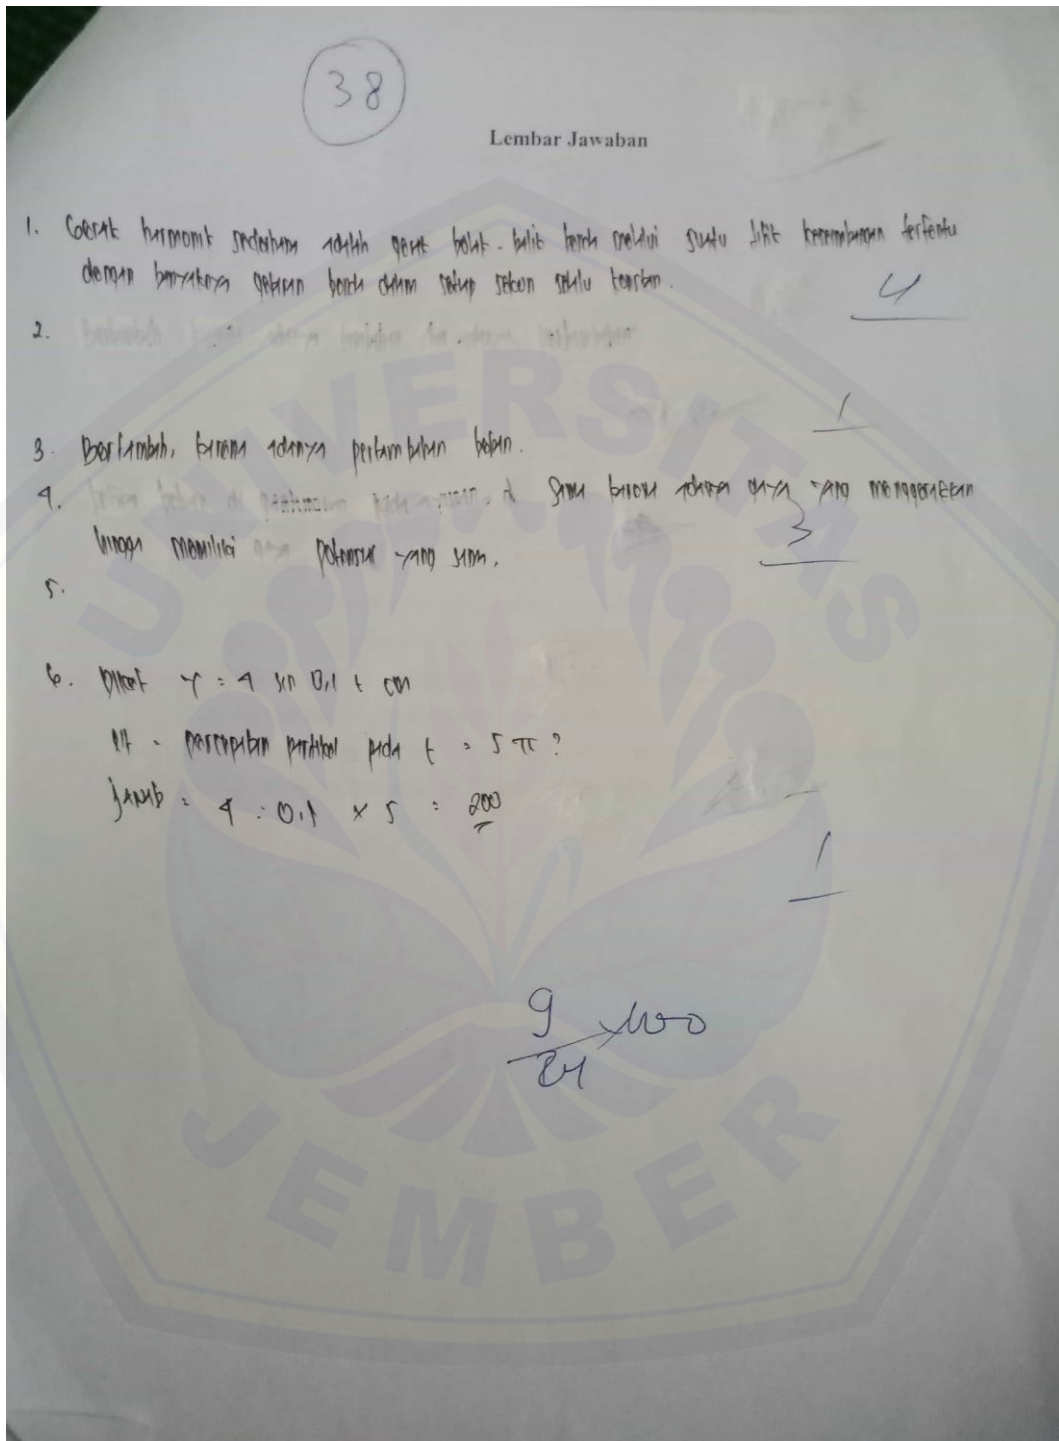 38
Lembar Jawaban
1. Gerak harmonik sederhana adalah gerak bolak-balik benda melalui suatu titik keseimbangan tertentu
dengan banyaknya getaran benda dalam setiap sekon selalu konstan.
4
2.
1
3. Bertambah, karena adanya pertambahan beban.
4. sama karena adanya gaya yang menggerakkan
3
hingga memiliki potensial yang sama.
5.
6. Diket y = 4 sin 0,1 t cm
Dit = percepatan partikel pada t = 5 π?
Jawab = 4 : 0,1 x 5 = 200
1
9/24 x 100
UNIVERSITAS
JEMBER